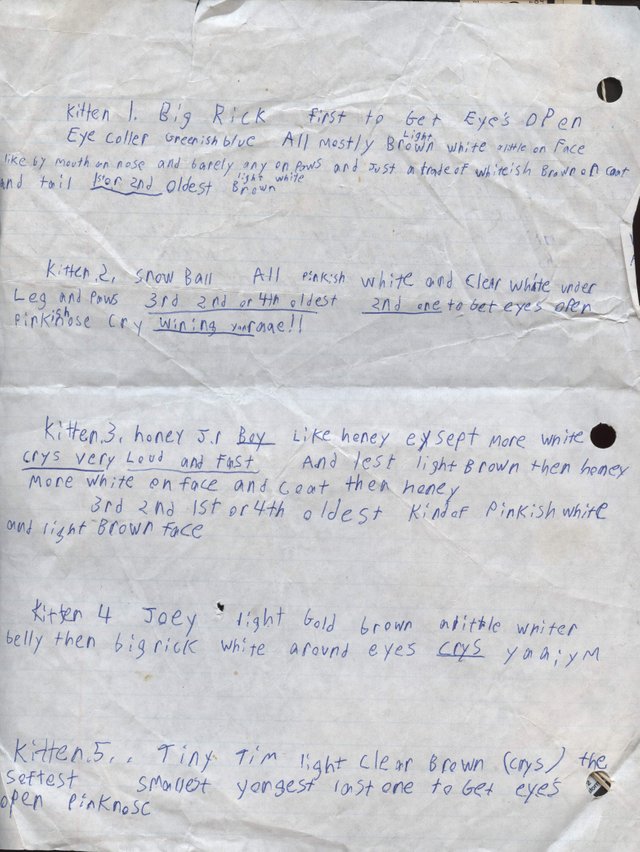 Kitten 1. Big Rick first to Get Eye's open
Eye coller Greenish blue All mostly Light Brown white a little on Face
like by mouth an nose and barely any on paws and Just a trade of whiteish Brown on coat
and tail 1st or 2nd oldest light white Brown
Kitten.2. Snow Ball All pinkish white and clear white under
Leg and paws 3rd 2nd or 4th oldest 2nd one to Get eye's open
pinkish nose Cry wining
Kitten.3. honey J.r Boy Like honey exsept more white
crys very Loud and Fast And lest light Brown then honey
more white on face and coat then honey
3rd 2nd 1st or 4th oldest kind of Pinkish white
and light Brown face
Kitten 4 Joey light Gold brown a little whiter
belly then big rick white around eyes crys yaaiym
Kitten.5.. Tiny Tim light clear Brown (crys) the
Seftest smallest yongest last one to Get eye's
open pinknose